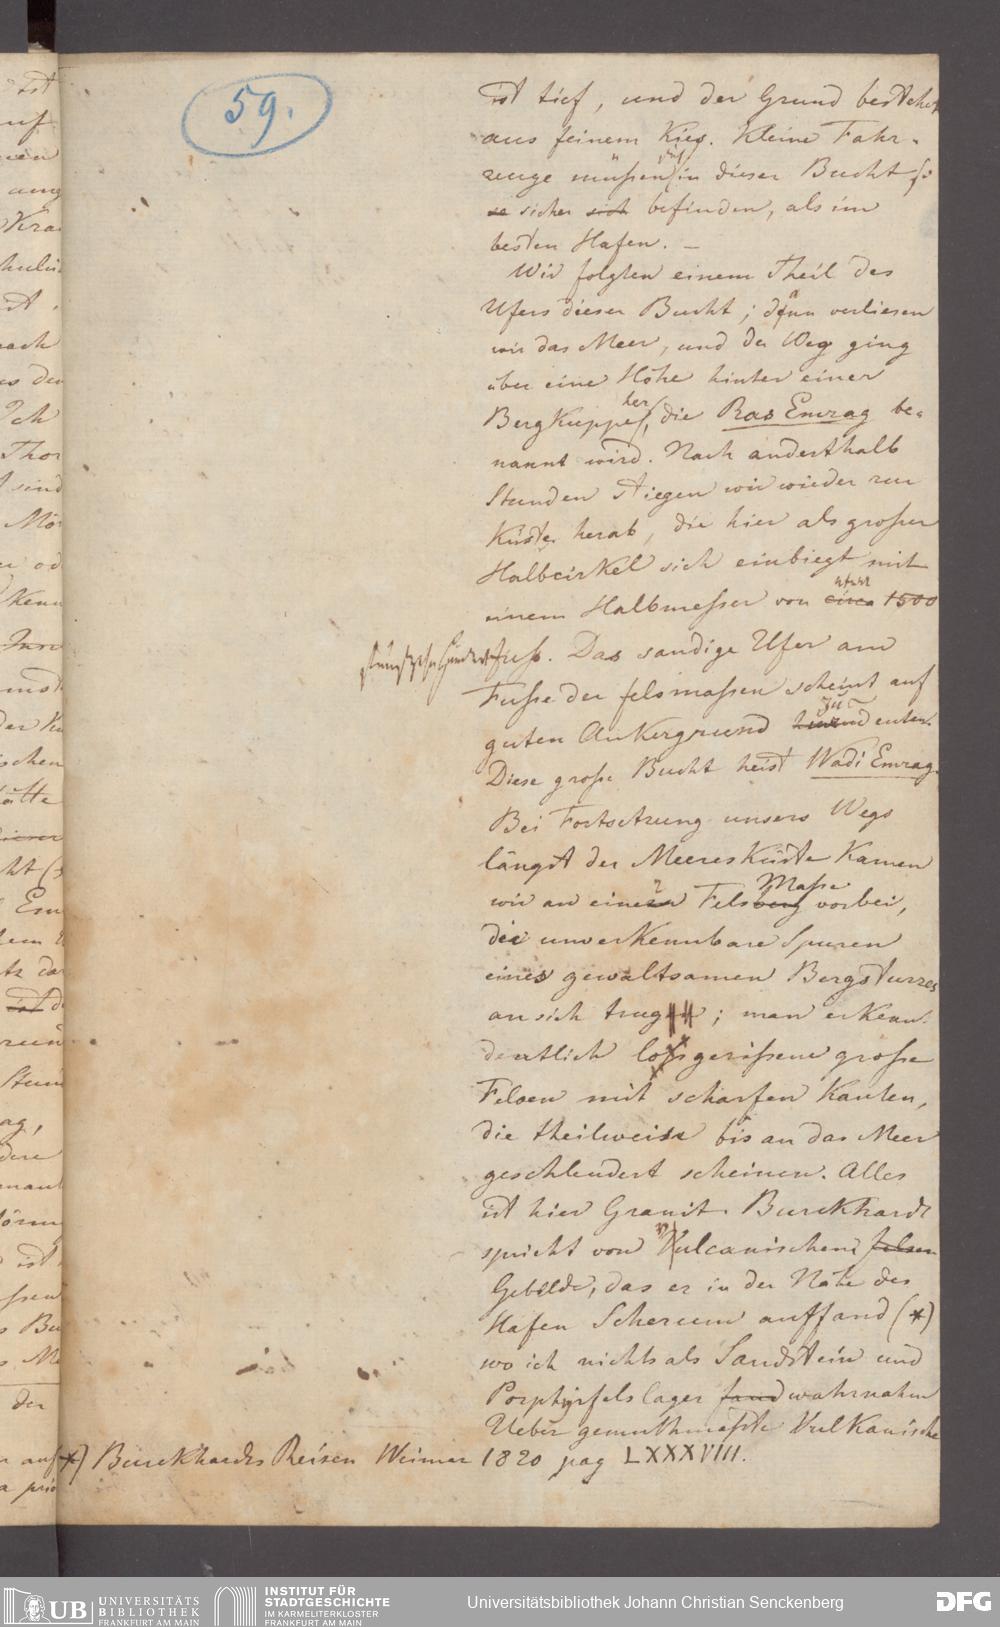 59.
ist tief, und der Grund bestehet
aus feinem Kies. Kleine Fahr-
zeuge müssen sich in dieser Bucht so
so sicher sich befinden, als im
besten Hafen. –
Wir folgten einem Theil des
Ufers dieser Bucht; dann verliesen
wir das Meer, und der Weg ging
über eine Höhe hinter einer
BergKuppe her, die Ras Emrag be-
nannt wird. Nach anderthalb
Stunden stiegen wir wieder zur
Küste herab, die hier als grosser
HalbcirKel sich einbiegt mit
einem Halbmesser von circa etwa 1500
fünfzehnhundert Fuss. Das sandige Ufer am
Fusse der felsmassen scheint auf
guten AnKergrund hinzudeuten.
Diese grosse Bucht heist Wadi Emrag.
Bei Fortsetzung unsers Wegs
längst der MeeresKüste Kamen
wir an einer Felsberg Masse vorbei,
die unverKennbare Spuren
eines gewaltsamen Bergsturzes
an sich trug; man erKennt
deutlich losgerissene grosse
Felsen mit scharfen Kanten,
die theilweise bis an das Meer
geschleudert scheinen. Alles
ist hier Granit. Burckhardt
spricht von Vulcanischem felsen
Gebilde, das er in der Nähe des
Hafen Scherum auffand (*)
wo ich nichts als Sandstein und
Porphyrfelslager fand wahrnahm
Ueber gemuthmasste VulKanische
*) Burckhardts Reisen Weimar 1820 pag LXXXVIII.
UB UNIVERSITÄTS
BIBLIOTHEK
FRANKFURT AM MAIN
INSTITUT FÜR
STADTGESCHICHTE
IM KARMELITERKLOSTER
FRANKFURT AM MAIN
Universitätsbibliothek Johann Christian Senckenberg
DFG